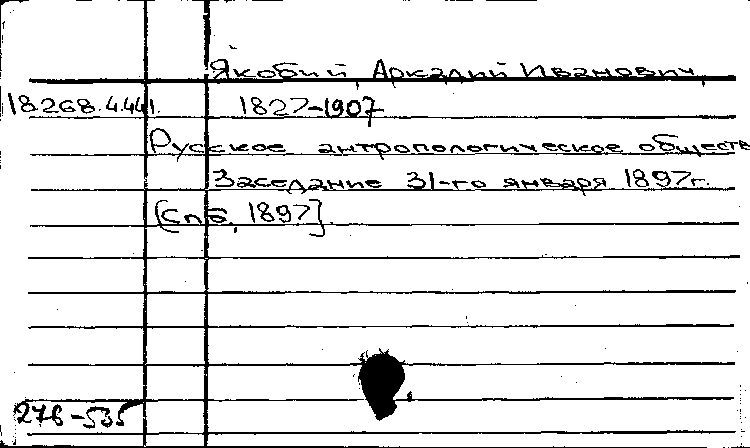 Якобий, Аркадий Иванович,
18.268.4.441. 1827-1907
Русское антропологическое обществ
Заседание 31-го января 1897г.
[Спб, 1897].
276-535